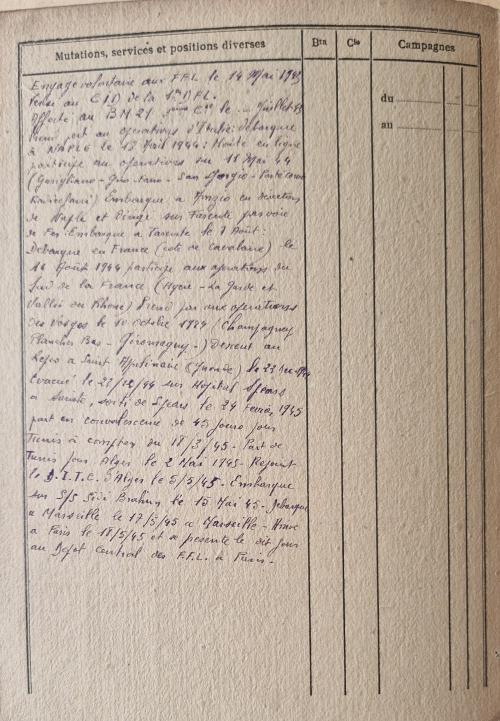 Mutations, services et positions diverses
Bta
Cie
Campagnes
du
au
Engagé volontaire aux F.F.L. le 14 Mai 1943
au CID de la 1ère D.F.L.
Affecté au BM 21 Cie le Juillet
Prend part au opérations d'Italie: débarque
à Naples le 18 Avril 1944: Monte en ligne
participe au opérations du 11 Mai 44
(Garigliano - San Giorgio -
Embarque a en direction
de Naple et dirigé sur Tarente par voie
de Fer. Embarque a Tarente le 7 Août:
Débarque en France (cote de Cavalaire) le
16 Août 1944 participe aux opérations du
Sud de la France (Hyere - La Garde et
Vallée du Rhone) Prend part aux opérations
des Vosges le 10 octobre 1944 (Champagney
Plancher Bas - Giromagny -) Descent au
Repos a Saint (Gironde) le
Evacué le 22/12/44 sur Hôpital Spears
a Saint, sorti de Spears le 24 Fevrier 1945
part en convalescence de 45 jours pour
Tunis à compter du 18/3/45 - Part de
Tunis pour Alger le 2 Mai 1945 - Rejoint
le D.I.T.C. d'Alger le 5/5/45 - Embarque
sur S/S Sidi Brahim le 15 Mai 45. Debarque
a Marseille le 17/5/45 a Marseille - Arrive
a Paris le 18/5/45 et se presente le dit jour
au Dépot Central des F.F.L. a Paris -